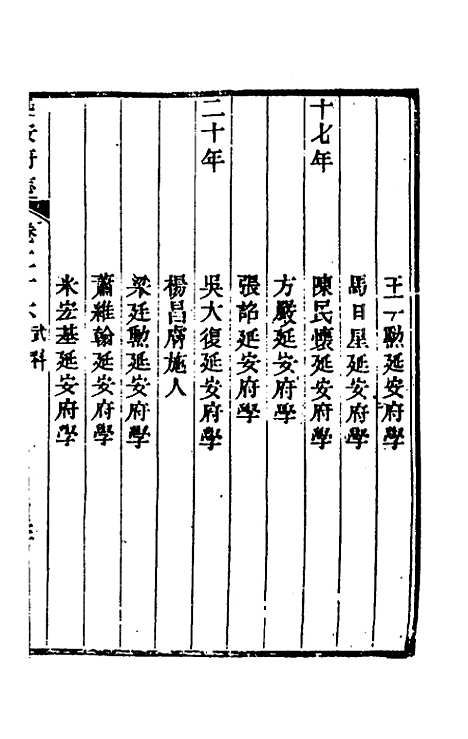 王一勳延安府學
馬日星延安府學
十七年
陳民懷延安府學
方嚴延安府學
張韶延安府學
二十年
吳大復延安府學
楊昌膚施人
梁廷勳延安府學
蕭維翰延安府學
米宏基延安府學
安府志
卷二十 武科